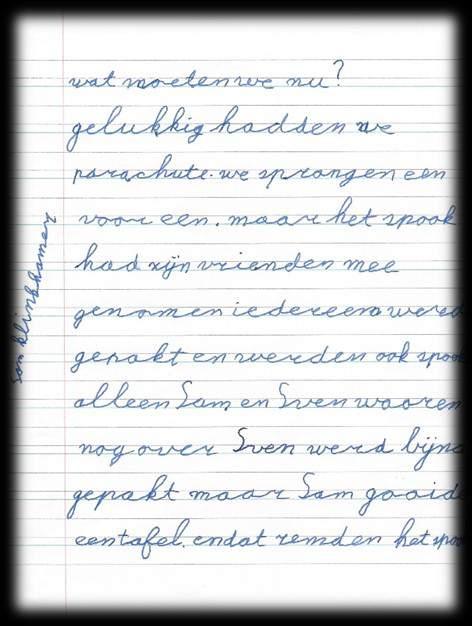 wat moeten we nu?
gelukkig hadden we
parachute. we sprongen een
voor een. maar het spook
had zijn vrienden mee
genomen iedereen werd
gepakt en werden ook spoo
alleen Sam en Sven waaren
nog over Sven werd bijna
gepakt maar Sam gooide
een tafel. en dat remden het spoo
Sam klinkhamer